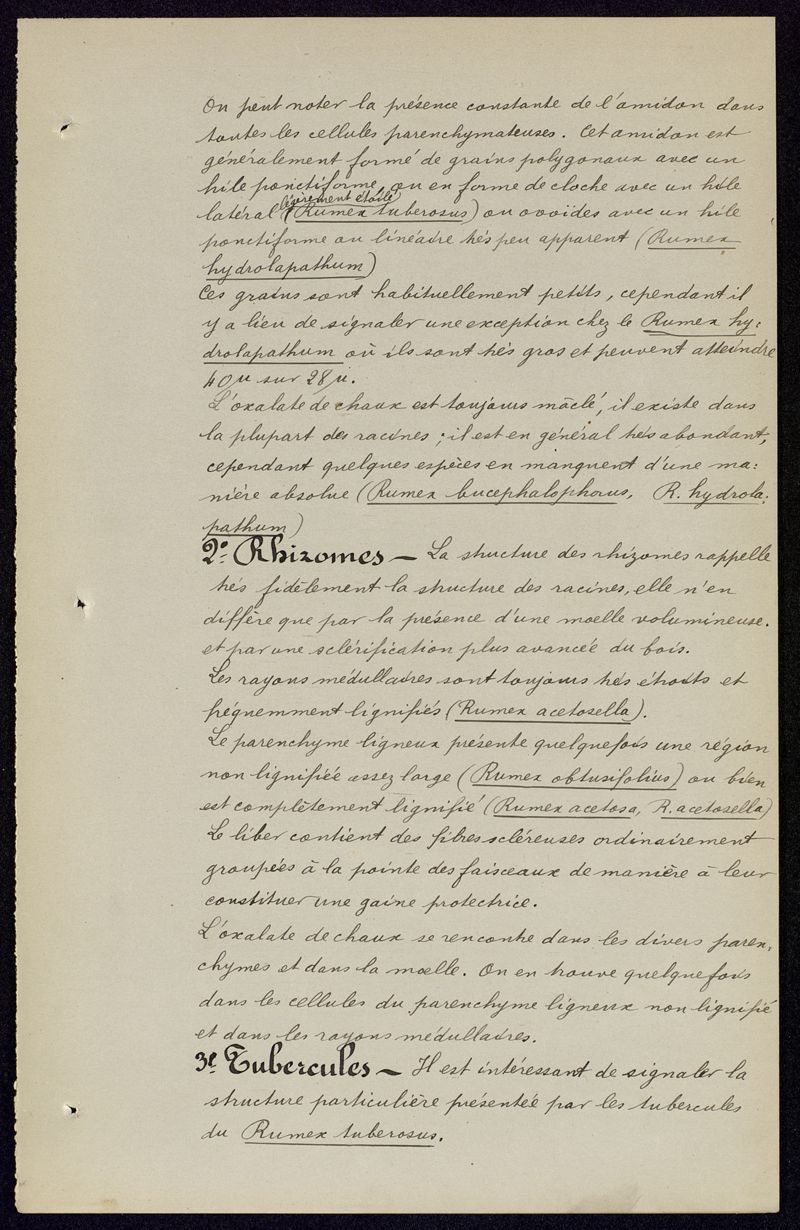 On peut noter la présence constante de l'amidon dans
toutes les cellules parenchymateuses. Cet amidon est
généralement formé de grains polygonaux avec un
hile ponctiforme, ou en forme de cloche avec un hile
légèrement étoilé
latéral (Rumex tuberosus) ou ovoïdes avec un hile
ponctiforme ou linéaire très peu apparent (Rumex
hydrolapathum)
Ces grains sont habituellement petits, cependant il
y a lieu de signaler une exception chez le Rumex hy:
drolapathum où ils sont très gros et peuvent atteindre
40µ sur 28µ.
L'oxalate de chaux est toujours mâclé, il existe dans
la plupart des racines; il est en général très abondant,
cependant quelques espèces en manquent d'une ma:
nière absolue (Rumex bucephalophorus, R. hydrola:
pathum)
2º Rhizomes — La structure des rhizomes rappelle
très fidèlement la structure des racines, elle n'en
diffère que par la présence d'une moelle volumineuse.
et par une sclérification plus avancée du bois.
Les rayons médullaires sont toujours très étroits et
fréquemment lignifiés (Rumex acetosella).
Le parenchyme ligneux présente quelquefois une région
non lignifiée assez large (Rumex obtusifolius) ou bien
est complètement lignifié (Rumex acetosa, R. acetosella)
Le liber contient des fibres scléreuses ordinairement
groupées à la pointe des faisceaux de manière à leur
constituer une gaine protectrice.
L'oxalate de chaux se rencontre dans les divers paren:
chymes et dans la moelle. On en trouve quelquefois
dans les cellules du parenchyme ligneux non lignifié
et dans les rayons médullaires.
3º Tubercules — Il est intéressant de signaler la
structure particulière présentée par les tubercules
du Rumex tuberosus.